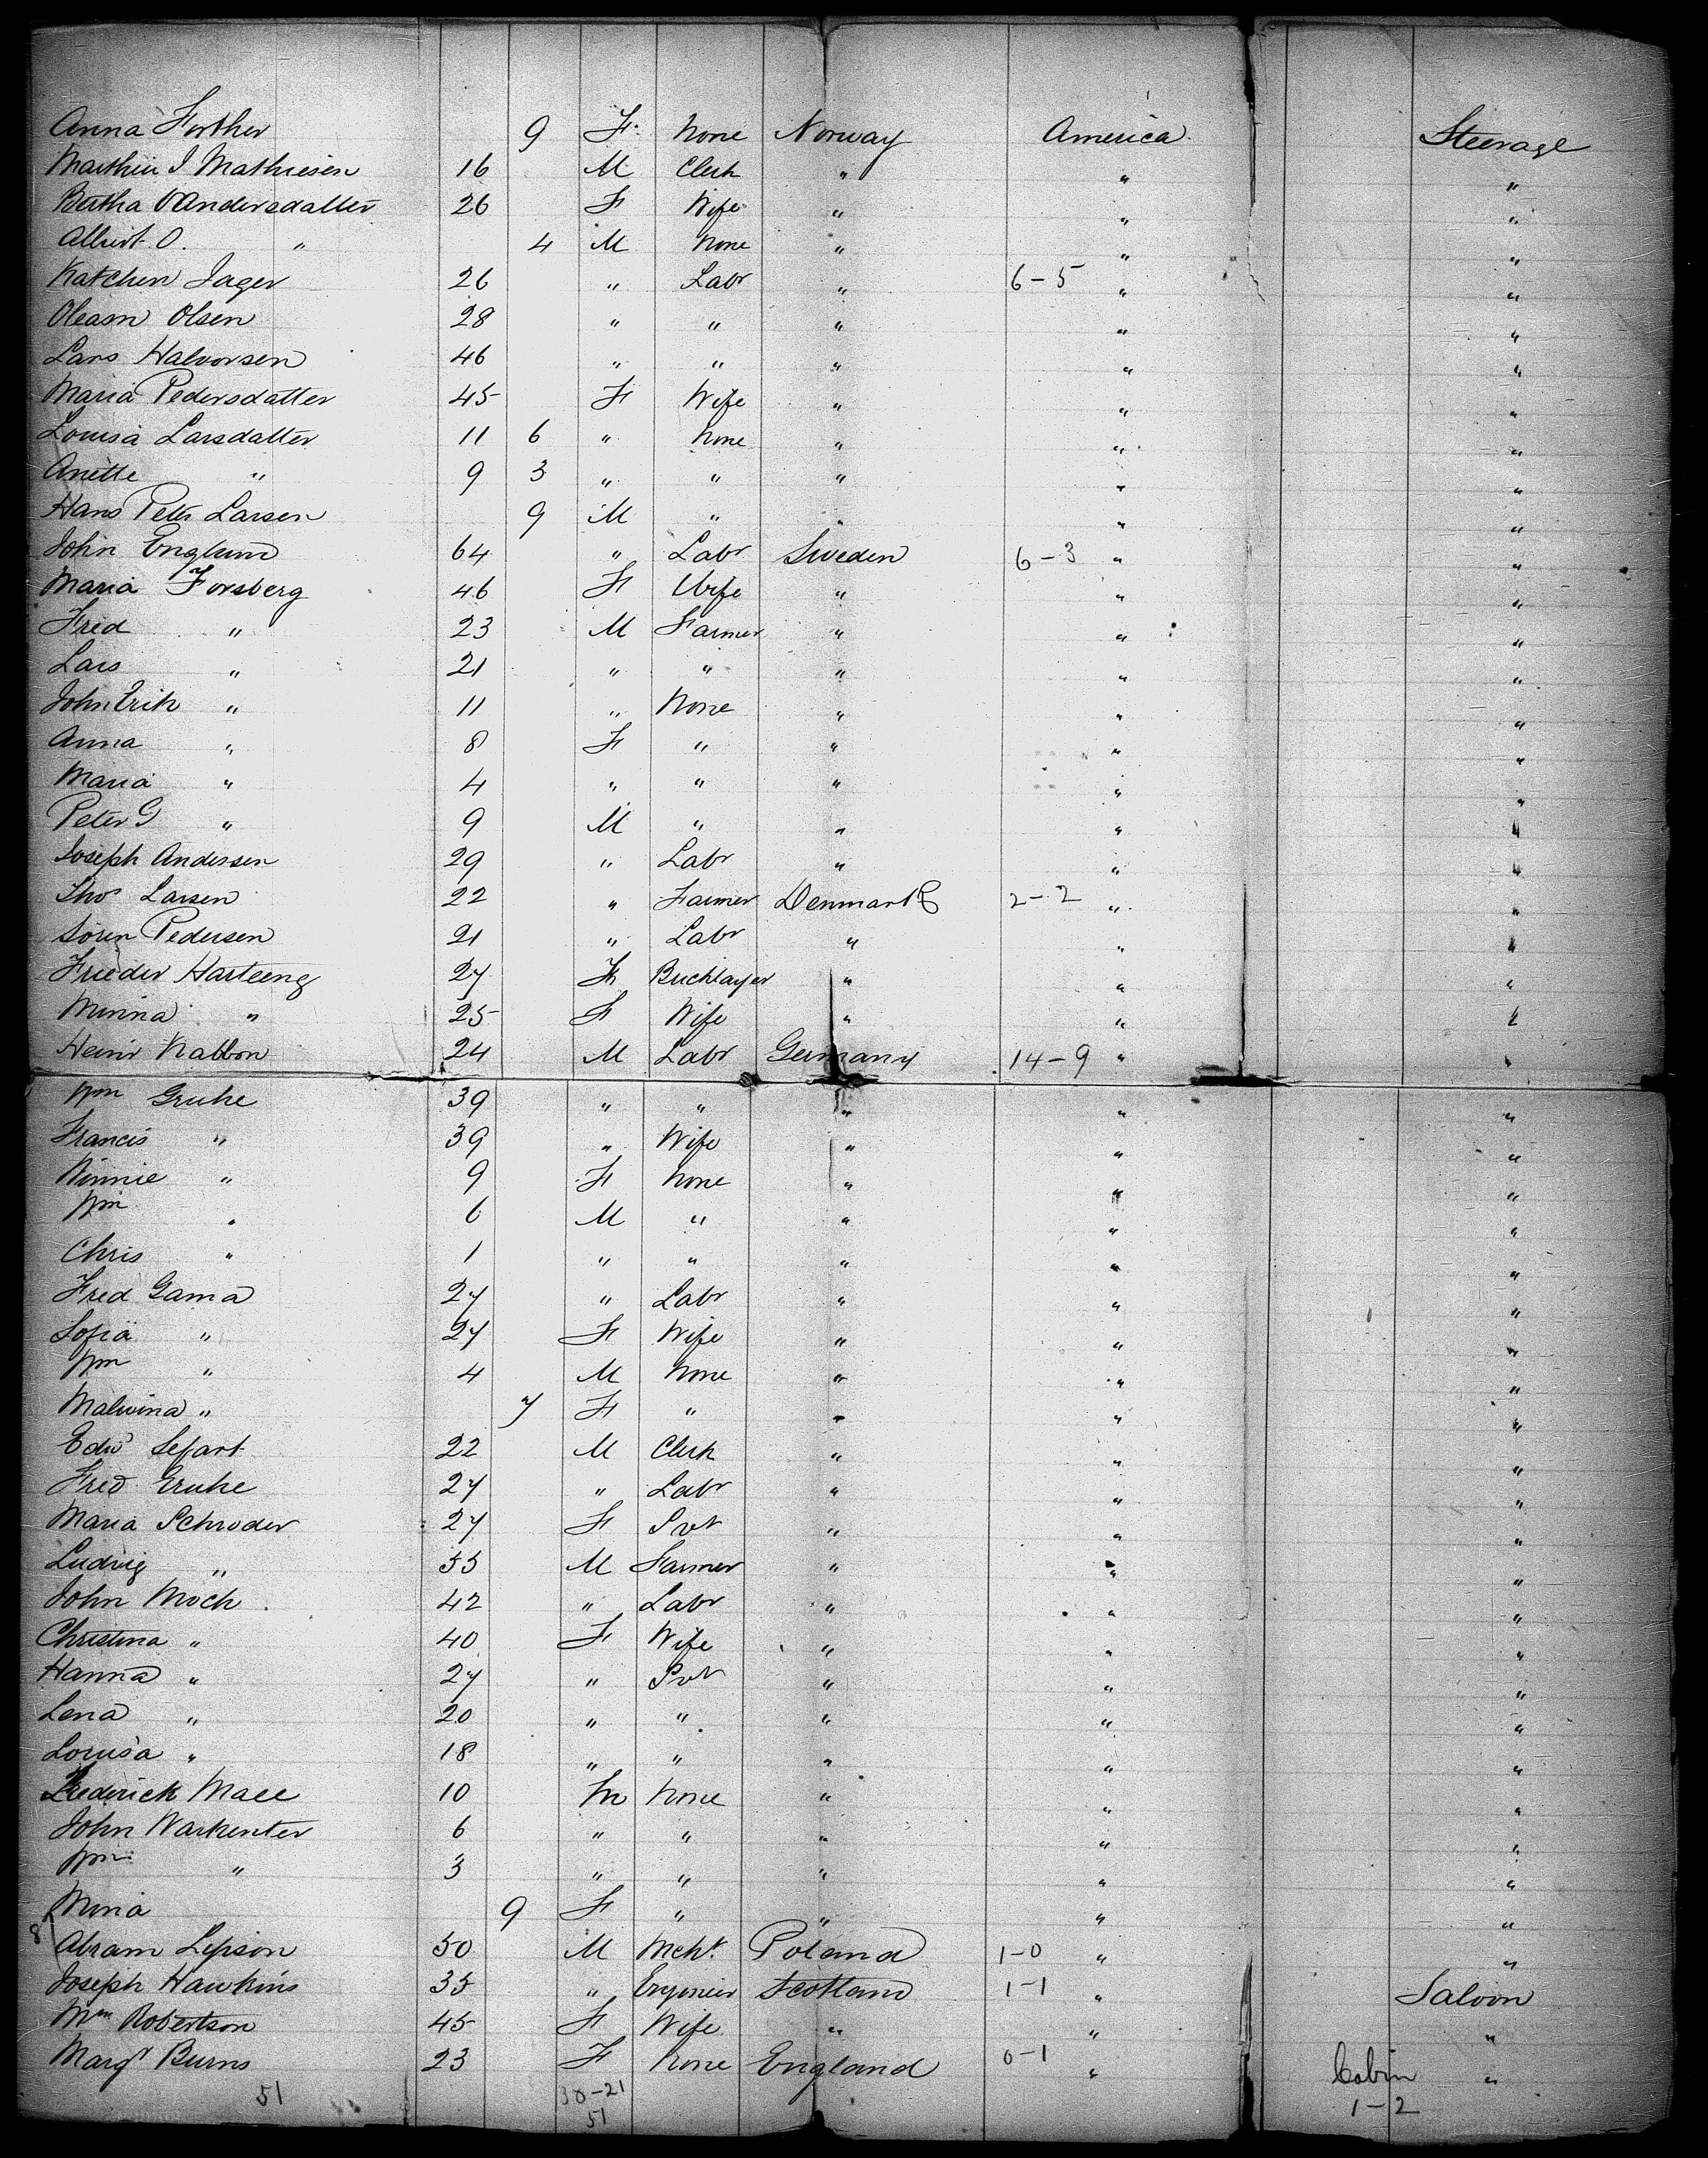 Anna Forther 9 F. None Norway America Steerage
Marthin J Mathiesen 16 M Clerk " " "
Bertha O Andersdatter 26 F Wife " " "
Albert O. " 4 M None " " "
Katchen Jager 26 " Labr " 6-5 " "
Oleasn Olsen 28 " " " " "
Lars Halvorsen 46 " " " " "
Maria Pedersdatter 45 F Wife " " "
Louisa Larsdatter 11 6 " None " " "
Anette " 9 3 " " " " "
Hans Peter Larsen 9 M " " " "
John Englund 64 " Labr Sweden 6-3 " "
Maria Forsberg 46 F Wife " " "
Fred " 23 M Farmer " " "
Lars " 21 " " " " "
John Erik " 11 " None " " "
Anna " 8 F " " " "
Maria " 4 " " " " "
Peter G " 9 M " " " "
Joseph Andersen 29 " Labr " " "
Thos Larsen 22 " Farmer Denmark 2-2 " "
Soren Pedersen 21 " Labr " " "
Frieder Harteeng 27 Bricklayer " " "
Minna " 25 F Wife " " "
Heinr Nabbon 24 M Labr Germany 14-9 " "
Wm Gruhe 39 " " " " "
Francis " 39 " Wife " " "
Winnie " 9 F None " " "
Wm " 6 M " " " "
Chris " 1 " " " " "
Fred Gama 27 " Labr " " "
Sofia " 27 F Wife " " "
Wm " 4 M None " " "
Malwina " 7 F " " " "
Edwd Sefart 22 M Clerk " " "
Fred Gruhe 27 " Labr " " "
Maria Schroder 27 F Svt " " "
Ludwig " 55 M Farmer " " "
John Moch 42 " Labr " " "
Christina " 40 F Wife " " "
Hanna " 27 " Svt " " "
Lena " 20 " " " " "
Louisa " 18 " " " " "
Frederick Mace 10 M None " " "
John Warkenter 6 " " " " "
Wm " 3 " " " " "
Mina 9 F " " " "
8 Abram Lepson 50 M Mcht. Poland 1-0 " "
Joseph Hawkins 35 " Engineer Scotland 1-1 " Saloon
Mrs Robertson 45 F Wife " " "
Margt Burns 23 F None England 0-1 " Cabin "
51 30-21 1-2
51